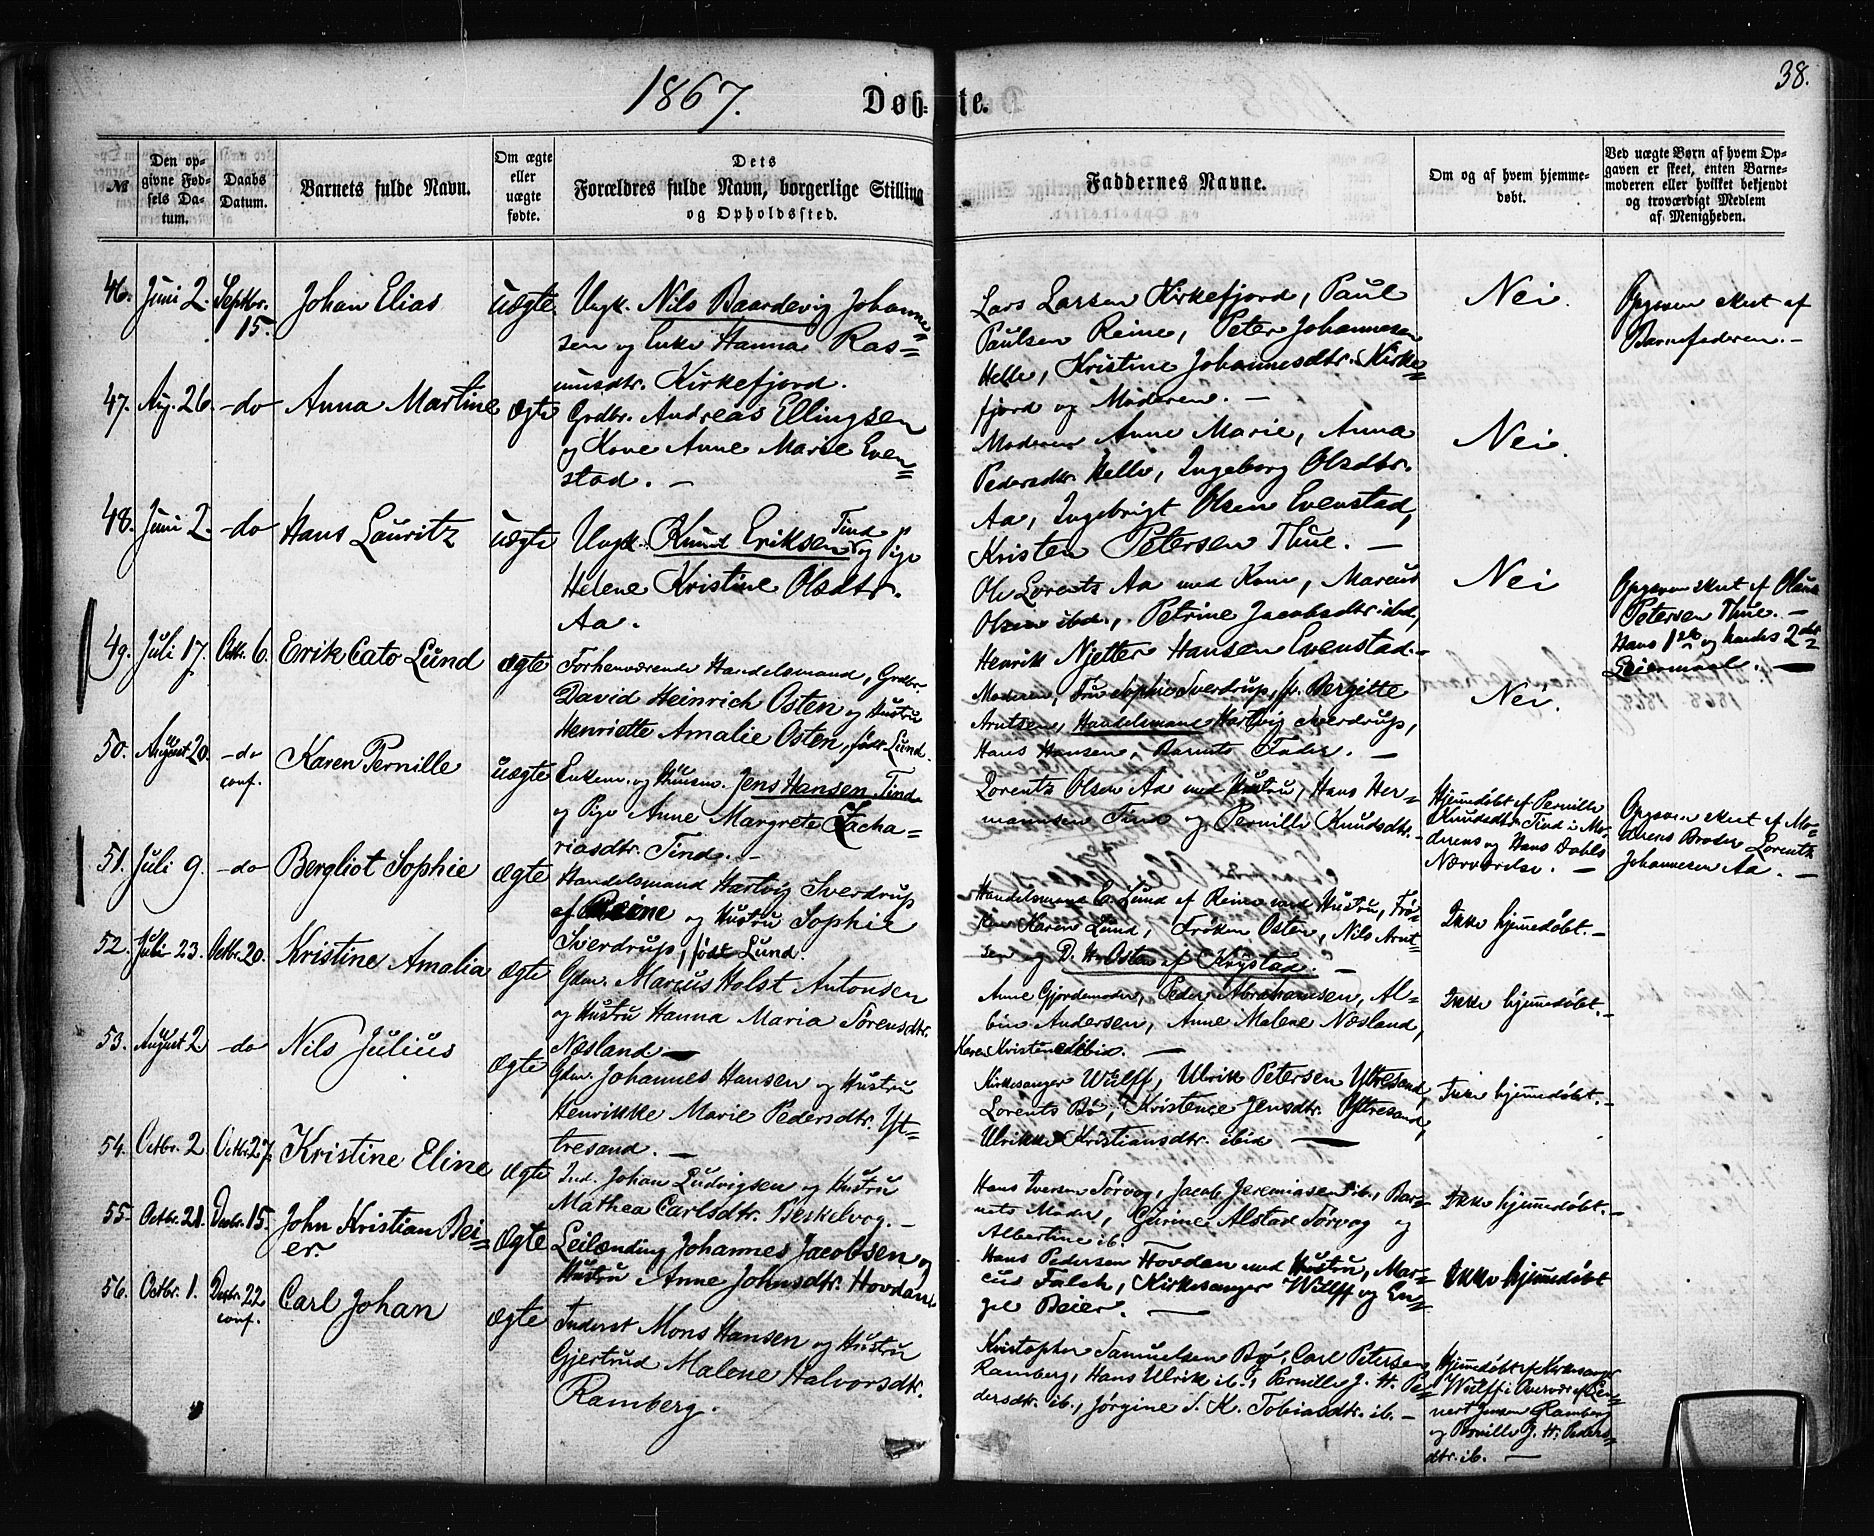 1867.
Døbte.
38.
№
Den opgivne Fødsels Datum.
Daabs Datum.
Barnets fulde Navn.
Om ægte eller uægte fødte.
Dets Forældres fulde Navn, borgerlige Stilling og Opholdssted.
Faddernes Navne.
Om og af hvem hjemmedøbt.
Ved uægte Børn af hvem Opgaven er skeet, enten Barnemoderen eller hvilket bekjendt og troværdigt Medlem af Menigheden.
46. Juni 2. Septbr. 15. Johan Elias uægte
Ungk. Nils Baardevig Johanne=
sen og Enke Hanna Ras=
musdtr. Kirkefjord.
Lars Larsen Kirkefjord, Paul
Paulsen Reine, Peter Johannesen
Helle, Kristine Johannesdtr. Kirke=
fjord og Moderen. —
Nei.
Opgaven skeet af
Barnefaderen. —
47. Aug. 26. -do Anna Martine ægte
Grdbr. Andreas Ellingsen
og Kone Anne Marie Even=
stad. —
Moderen Anne Marie, Anna
Pedersdtr. Helle, Ingeborg Olsdtr.
Aa, Ingebrigt Olsen Evenstad,
Kristen Petersen Thue. —
Nei.
48. Juni 2. -do Hans Lauritz uægte
Ungk. Knud Eriksen Tind og Pige
Helene Kristine Olsdtr.
Aa.
Ole Lorents Aa med Kone, Marcus
Olsen ibd., Petrine Jacobsdtr. ibd,
Henrik Njetter Hansen Evenstad. —
Nei
Opgaven skeet af
Petersen Thue. —
Hans 1ste og hendes 2det
Leiermaal. —
49. Juli 17. Octbr. 6. Erik Cato Lund ægte
Forhenværende Handelsmand, Grdbr.
David Heinrich Osten og Hustru
Henriette Amalie Osten, født Lund.
Moderen, Fru Sophie Sverdrup, Bergitte
Arntsen, Handelsmand Hartvig Sverdrup,
Hans Hansen, Barnets Fader. —
Nei.
50. August 20. -do conf. Karen Pernille uægte
Enkem. og Huusm. Jens Hansen Tind
og Pige Anne Margrete Zacha=
riasdtr. Tind. —
Lorents Olsen Aa med Hustru, Hans Her=
mannsen Tind og Pernille Knudsdtr. —
Hjemmedøbt af Pernille
Knudsdtr. Tind i Mo=
derens og Hans Dahls
Nærværelse. —
Opgaven skeet af Mo=
derens Broder Lorents
Johannesen Aa. —
51. Juli 9. -do Bergliot Sophie ægte
Handelsmand Hartvig Sverdrup
af Reine og Hustru Sophie
Sverdrup, født Lund.
Handelsmand E. Lund af Reine med Hustru, Frø=
ken Karen Lund, Frøken Osten, Nils Arnt=
sen og D. H. Osten af Krystad. —
Ikke hjemmedøbt. —
52. Juli 23. Octbr. 20. Kristine Amalia ægte
Gdm. Marcus Holst Antonsen
og Hustru Hanna Maria Sørensdtr.
Næsland —
Anne Gjordemoder, Peder Abrahamsen, Al=
bin Andersen, Anne Malene Næsland,
Karen Kristensdtr ibid. —
Ikke hjemmedøbt. —
53. August 2. -do Nils Julius ægte
Gdm. Johannes Hansen og Hustru
Henrikke Marie Pedersdtr. Yt=
tresand. —
Kirkesanger Wulff, Ulrik Petersen Yttresand,
Lorents Bø, Kristence Jensdtr. Yttresand,
Ulrikke Kristiansdtr. ibid —
Ikke hjemmedøbt. —
54. Octbr. 2 Octbr. 27. Kristine Eline ægte
Ind. Johan Ludvigsen og Hustru
Mathea Carlsdtr. Beskelvog. —
Hans Iversen Sørvog, Jacob Jeremiasen ib., Bar=
nets Moder, Gurine Alstad Sørvog og
Albertine ib.
Ikke hjemmedøbt. —
55. Octbr. 21. Decbr. 15. John Kristian Bei=
er. ægte
Leilænding Johannes Jacobsen og
Hustru Anne Johnsdtr. Hovden
Hans Pedersen Hovden med Hustru, Mar=
cus Falch, Kirkesanger Wulff og En=
gel Beier. —
Ikke hjemmedøbt
56. Octbr. 1. Decbr. 22 conf. Carl Johan ægte
Inderst Mons Hansen og Hustru
Gjertrud Malene Halvorsdtr.
Ramberg.
Kristopher Samuelsen Bø, Carl Petersen
Ramberg, Hans Ulrik ib., Pernille J. H. Pe=
dersdtr. ib., Jørgine S. K. Tobiasdtr. ib. —
Hjemmedøbt af Kirkesanger
Wulff i Overvær af Len=
nert Jensen Ramberg
og Pernille J. H. Peders=
dtr. ib. —